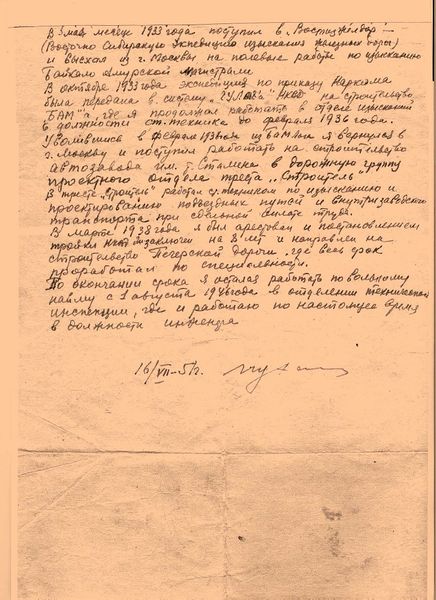 В мае месяце 1933 года поступил в „Востиzжелдор" —
(Восточно Сибирскую Экспедицию изыскания железных дорог)
и выехал из г. Москвы на полевые работы по изысканию
Байкало Амурской магистрали.
В октябре 1933 года экспедиция по приказу Наркома
была передана в систему „ГУЛАГа" НКВД на строительство
БАМ"а, где я продолжал работать в отделе изысканий
в должности ст. техника до февраля 1936 года.
Уволившись в феврале 1936 г. из БАМлага я вернулся в
г. Москву и поступил работать на строительство
автозавода им. т. Сталина в дорожную группу
проектного отдела треста „Строитель"
В тресте „Строитель" работал ст. техником по изысканию и
проектированию подъездных путей и внутризаводского
транспорта при сдельной оплате труда.
В марте 1938 года я был арестован и постановлением
тройки НКВД заключен на 8 лет и направлен на
строительство Печерской дороги, где весь срок
проработал по специальности.
По окончании срока я остался работать по вольному
найму с 1 августа 1946 года в отделении технической
инспекции, где и работаю по настоящее время
в должности инженера
16/VII–51г.